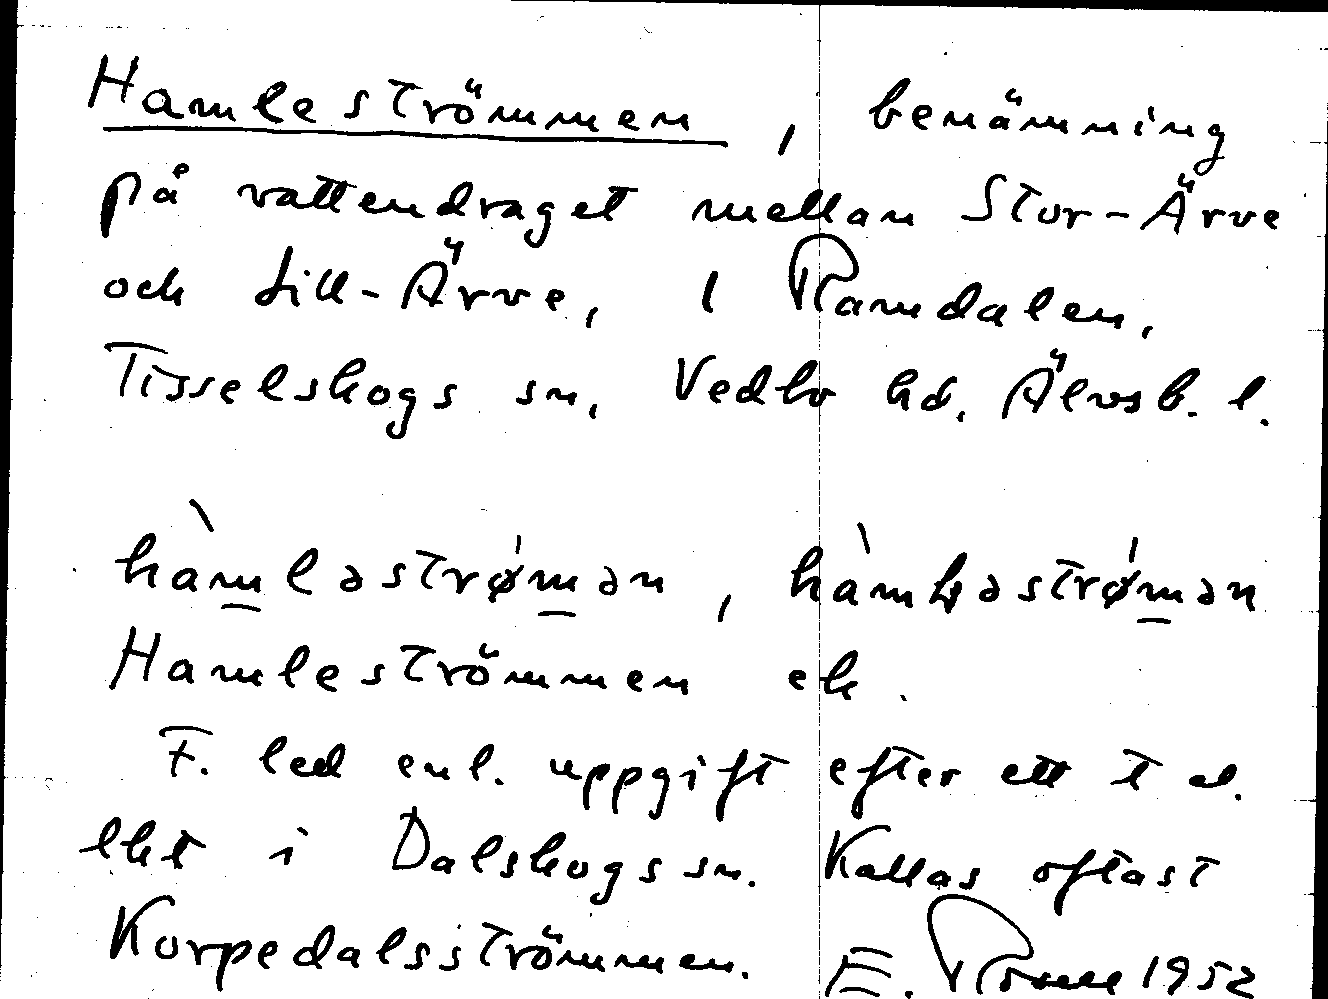 Hamleströmmen, benämning
på vattendraget mellan Stor-Ärve
och Lill-Ärve, i Ramdalen,
Tisselskogs sn, Vedbo hd, Älvsb. l.
hàmləstrǿmən, hàmləstrǿmən
Hamleströmmen ek.
F. led enl. uppgift efter ett t
i Dalskogs sn. Kallas oftast
Korpedalsströmmen. E. 1952